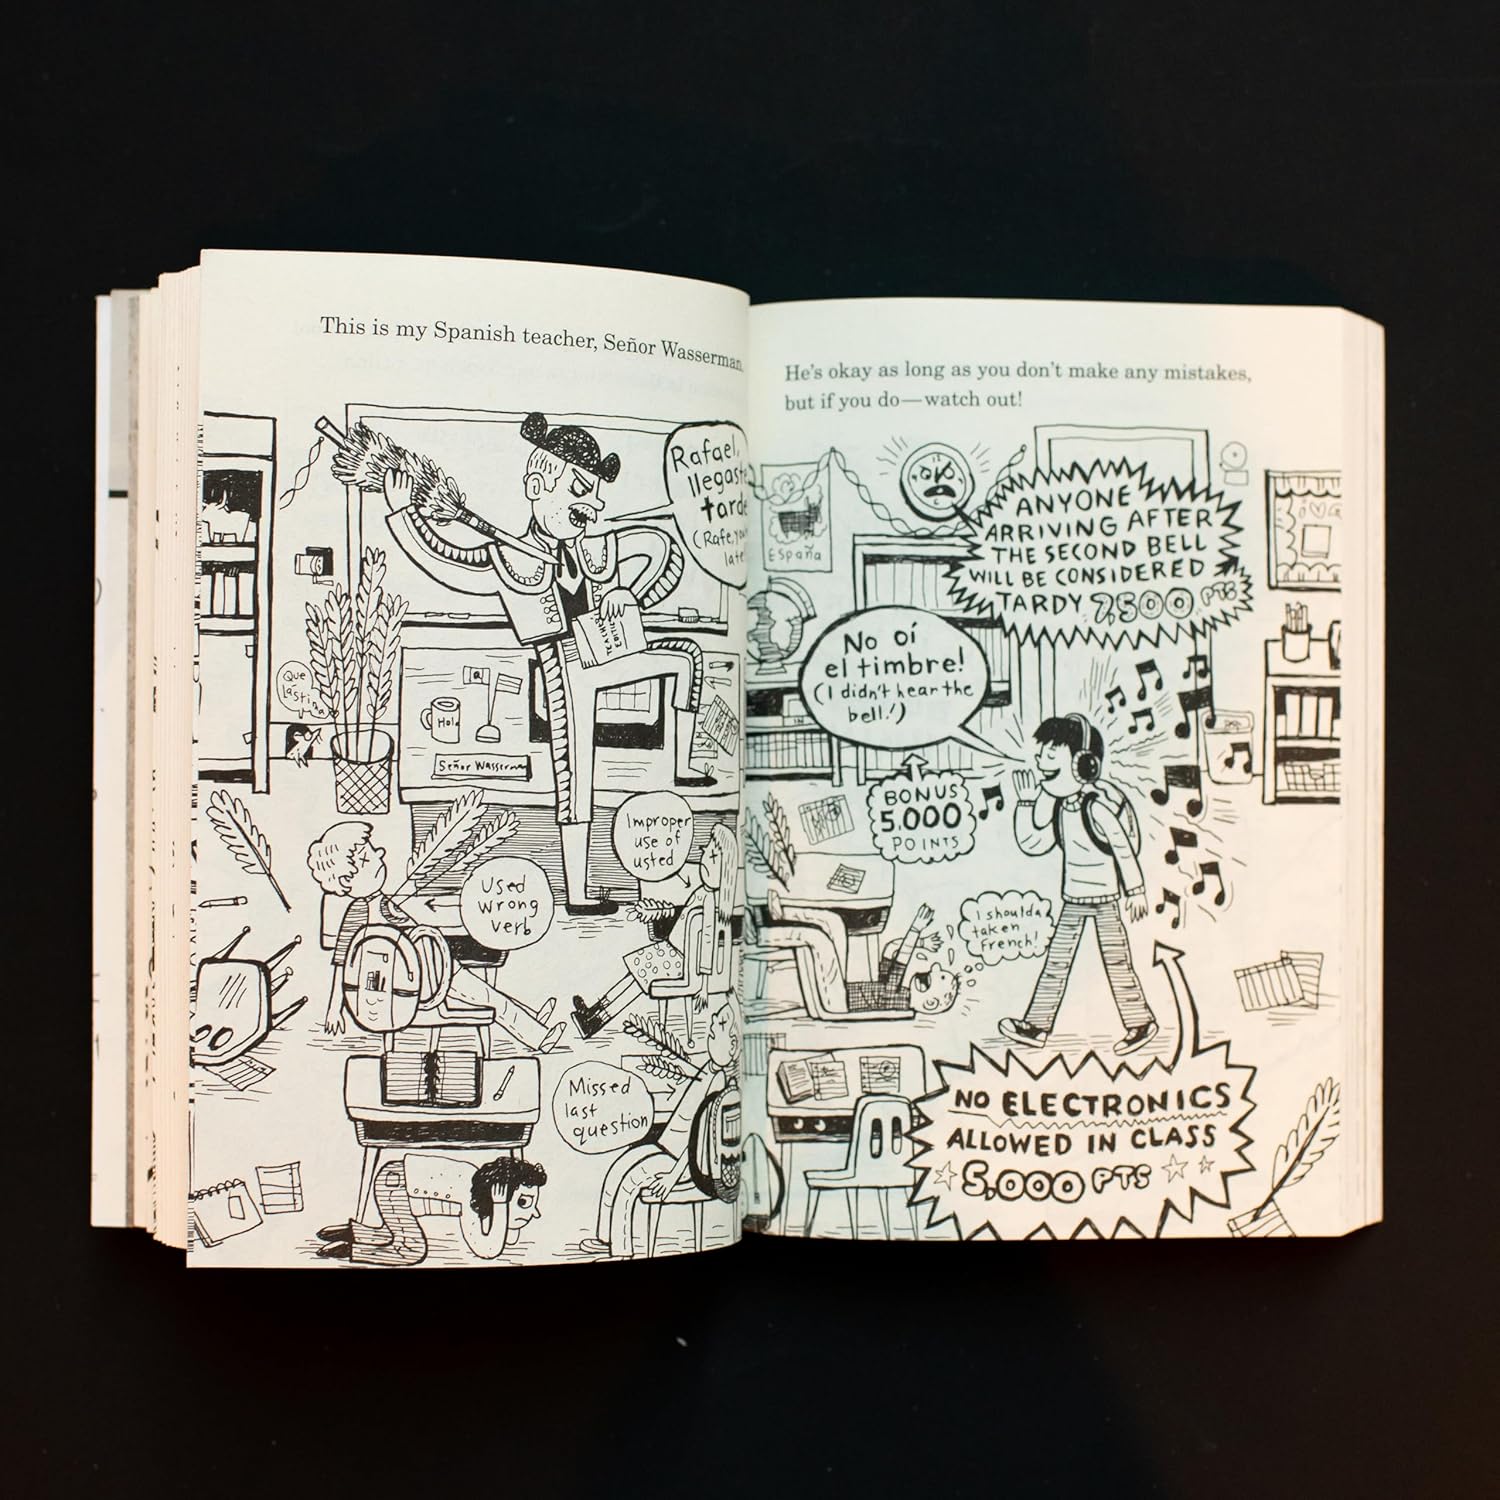 This is my Spanish teacher, Señor Wasserman.
Rafael,
llegaste
tarde
(Rafe, you
late
Que
lástima
Hola
Señor Wasserman
TEACHER
EDITION
Improper
use of
usted
Used
wrong
verb
Missed
last
question
He's okay as long as you don't make any mistakes,
but if you do—watch out!
España
ANYONE
ARRIVING AFTER
THE SECOND BELL
WILL BE CONSIDERED
TARDY 7,500 PTS
No oí
el timbre!
(I didn't hear the
bell!)
BONUS
5,000
POINTS
I shoulda
taken
French!
NO ELECTRONICS
ALLOWED IN CLASS
5,000 PTS